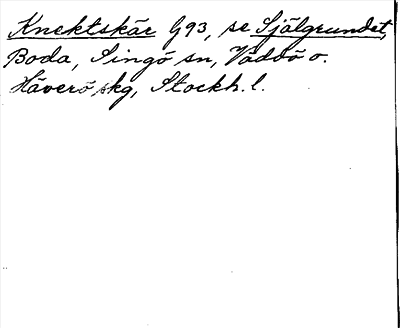 Knektskär G93, se Själgrundet,
Boda, Singö sn, Väddö o.
Häverö skg, Stockh. l.